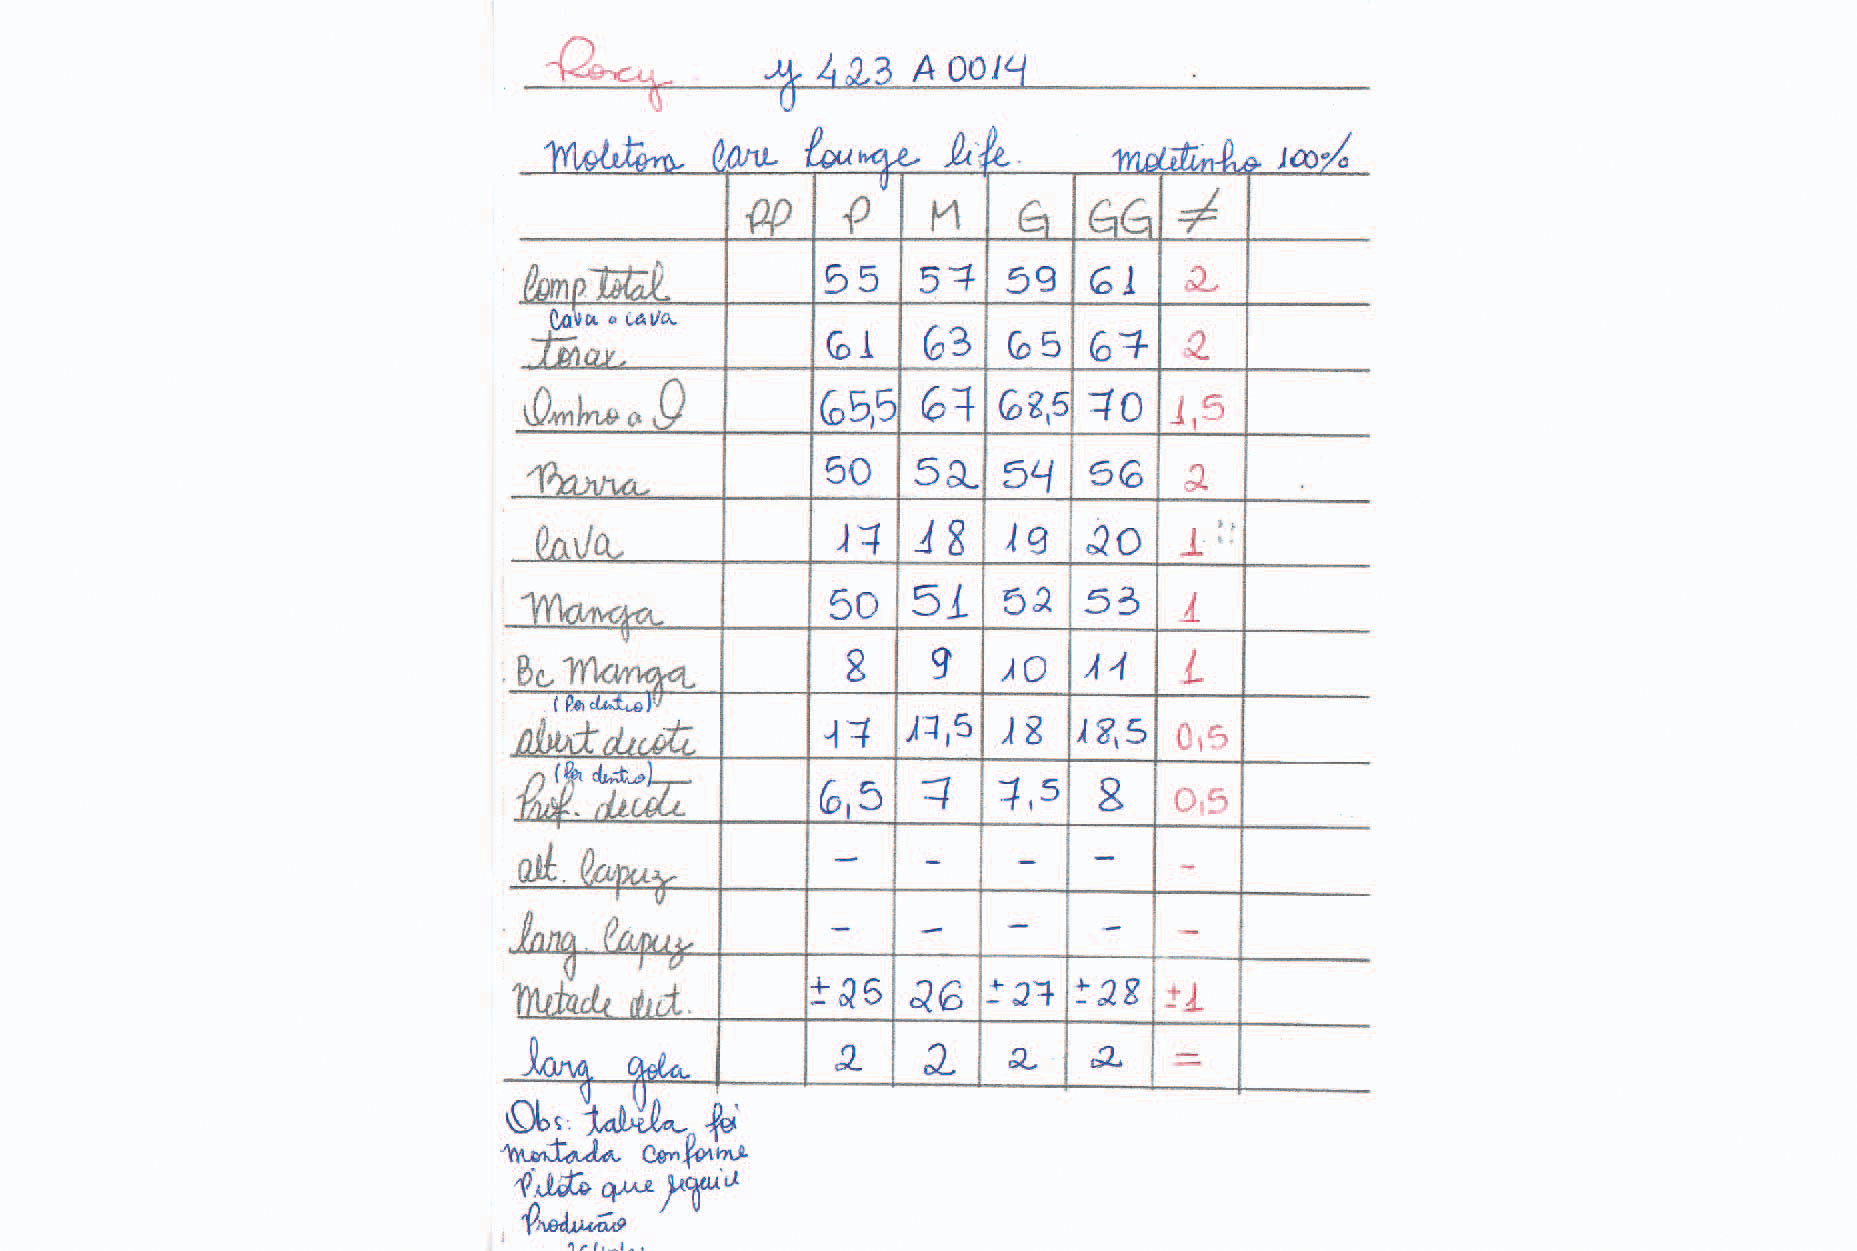 Roxy y 423 A 0014
Moletom Care Lounge life. moletinho 100%
PP P M G GG ≠
Comp. total 55 57 59 61 2
Cava a cava
torax 61 63 65 67 2
Ombro a O 65,5 67 68,5 70 1,5
Barra 50 52 54 56 2
Cava 17 18 19 20 1
Manga 50 51 52 53 1
Bc Manga 8 9 10 11 1
(Por dentro)
abert decote 17 17,5 18 18,5 0,5
(Por dentro)
Prof. decote 6,5 7 7,5 8 0,5
alt. Capuz - - - - -
larg. Capuz - - - - -
Metade dect. ±25 26 ±27 ±28 ±1
larg gola 2 2 2 2 =
Obs: tabela foi
montada conforme
Piloto que seguiu
Produção